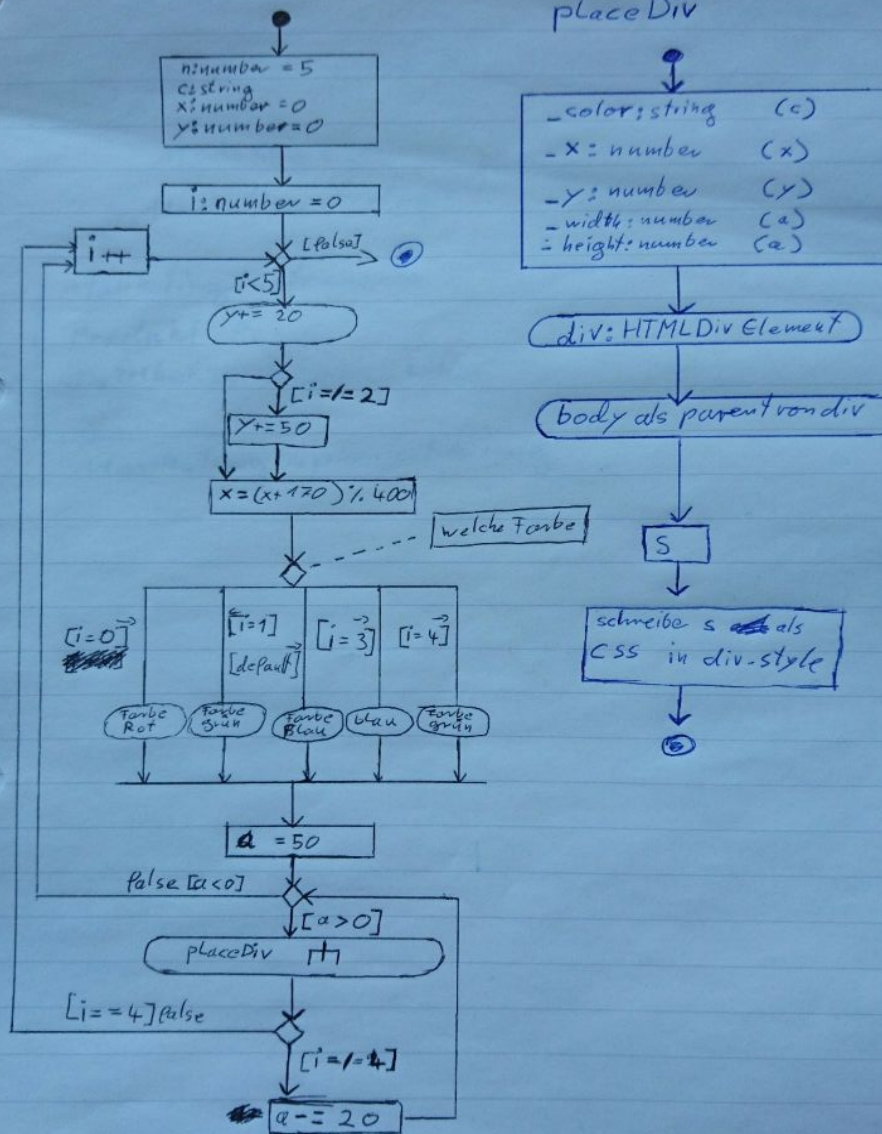 placeDiv
n:number = 5
c:string
x:number = 0
y:number = 0
i:number = 0
i++
[false]
[i<5]
y+= 20
[i=/=2]
y+=50
x=(x+170)%400
welche Farbe
[i=0]
[i=1]
[default]
[i=3]
[i=4]
Farbe
Rot
Farbe
grün
Farbe
Blau
blau
Farbe
grün
a = 50
false [a<0]
[a>0]
placeDiv
[i==4] false
[i=/=4]
a-= 20
_color:string (c)
_x: number (x)
_y: number (y)
_width:number (a)
_height:number (a)
div:HTMLDivElement
body als parent von div
S
schreibe s als
CSS in div-style